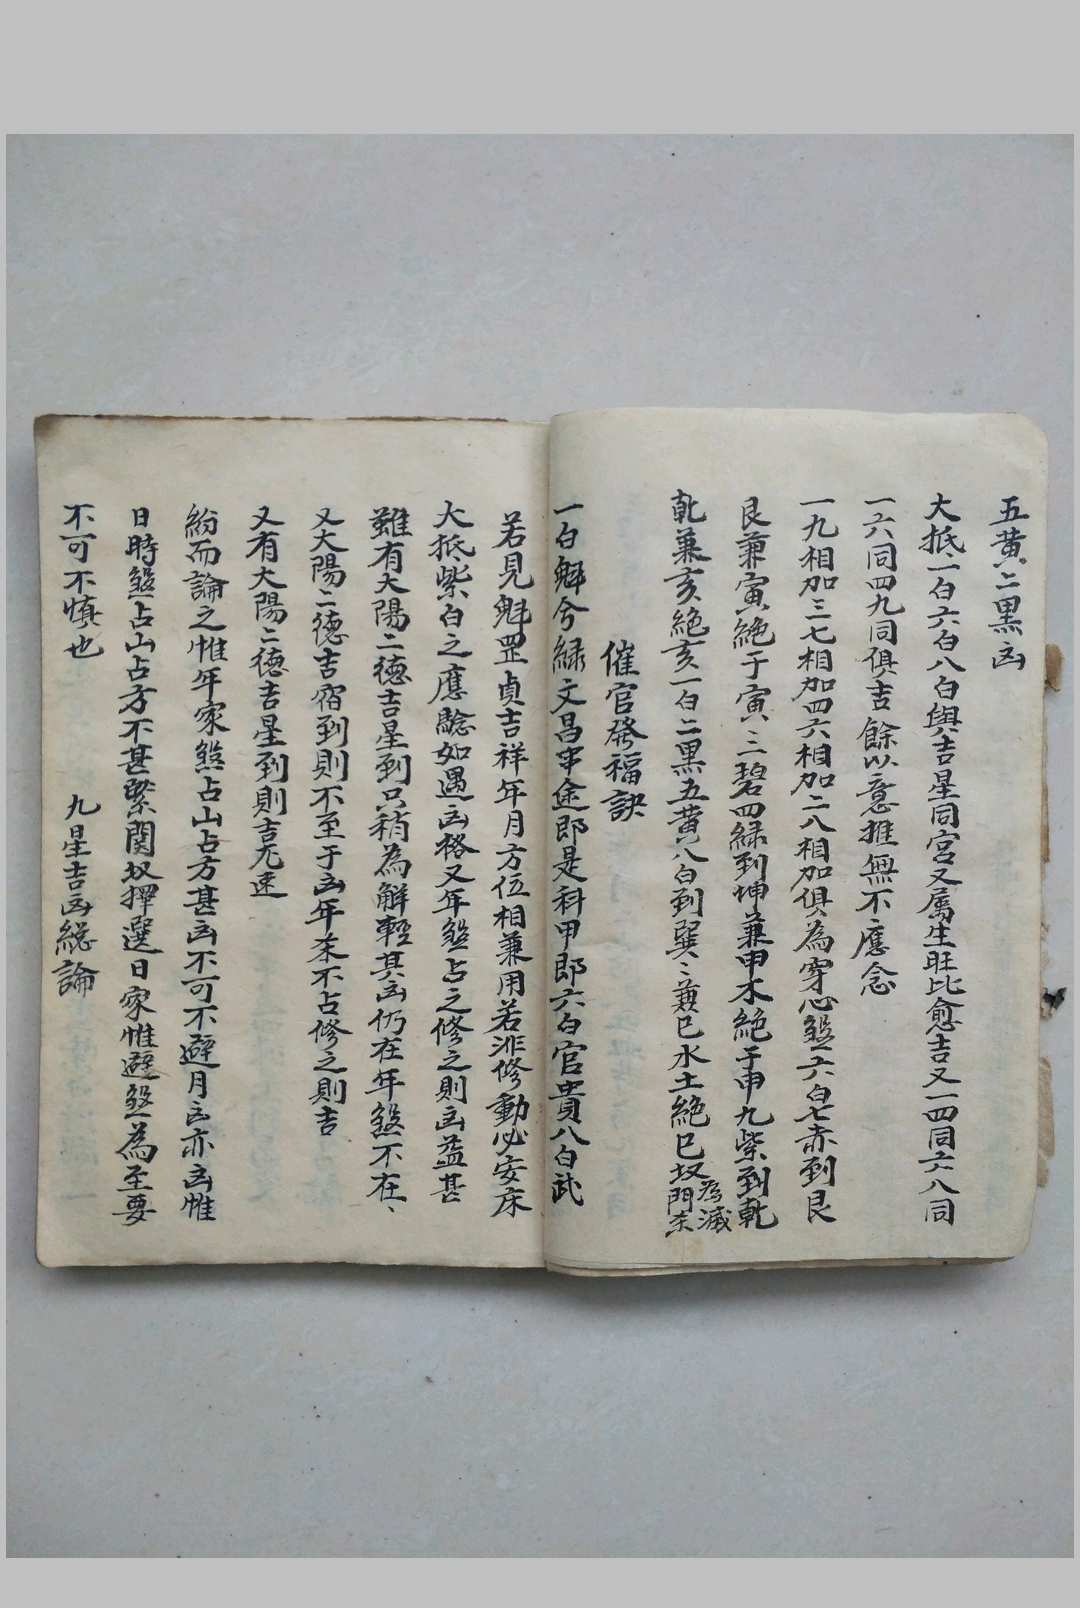 五黃二黑凶
大抵一白六白八白與吉星同宮又属生旺比愈吉又一四同六八同
一六同四九同俱吉餘以意推無不應念
一九相加三七相加四六相加二八相加俱為穿心煞六白七赤到艮
艮兼寅絕于寅三碧四緑到坤兼申木絕于申九紫到乾
乾兼亥絕亥一白二黑五黃八白到巽〻兼巳水土絕巳
催官發福訣
一白魁兮緑文昌 途郎是科甲郎六白官貴八白武
若見魁罡貞吉祥年月方位相兼用若非修動必安床
大抵紫白之應驗如遇凶格又年煞占之修之則凶益甚
雖有大陽二德吉星到只稍為解輕其凶仍在年煞不在、
又大陽二德吉宿到則不至于凶年杀不占修之則吉
又有大陽二德吉星到則吉尤速
紛而論之惟年家煞占山占方甚凶不可不避月 亦凶惟
日時煞占山占方不甚緊関 擇選日家惟避煞為至要
不可不慎也
九星吉凶総論